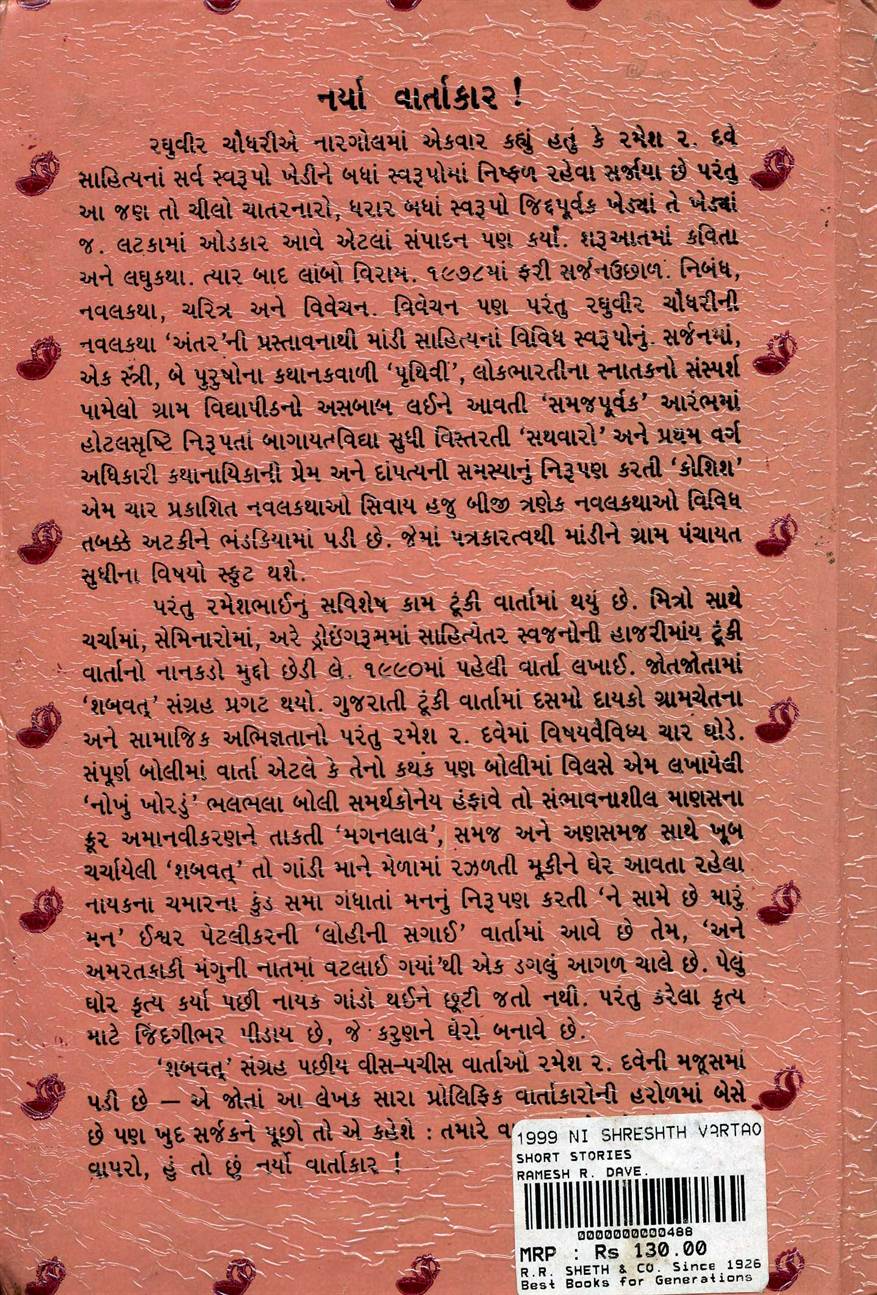 નર્યા વાર્તાકાર !
રઘુવીર ચૌધરીએ નારગોલમાં એકવાર કહ્યું હતું કે રમેશ ર. દવે
સાહિત્યનાં સર્વ સ્વરૂપો ખેડીને બધાં સ્વરૂપોમાં નિષ્ફળ રહેવા સર્જાયા છે પરંતુ
આ જણ તો ચીલો ચાતરનારો, ધરાર બધાં સ્વરૂપો જિદ્દપૂર્વક ખેડ્યાં તે ખેડ્યાં
જ. લટકામાં ઓડકાર આવે એટલાં સંપાદન પણ કર્યાં. શરૂઆતમાં કવિતા
અને લઘુકથા. ત્યાર બાદ લાંબો વિરામ. ૧૯૭૮માં ફરી સર્જનઉછાળ. નિબંધ,
નવલકથા, ચરિત્ર અને વિવેચન. વિવેચન પણ પરંતુ રઘુવીર ચૌધરીની
નવલકથા ‘અંતર’ની પ્રસ્તાવનાથી માંડી સાહિત્યનાં વિવિધ સ્વરૂપોનું. સર્જનમાં,
એક સ્ત્રી, બે પુરુષોના કથાનકવાળી ‘પૃથિવી’, લોકભારતીના સ્નાતકનો સંસ્પર્શ
પામેલો ગ્રામ વિદ્યાપીઠનો અસબાબ લઈને આવતી ‘સમજપૂર્વક’ આરંભમાં
હોટલસૃષ્ટિ નિરૂપતાં બાગાયતવિદ્યા સુધી વિસ્તરતી ‘સથવારો’ અને પ્રથમ વર્ગ
અધિકારી કથાનાયિકાની પ્રેમ અને દાંપત્યની સમસ્યાનું નિરૂપણ કરતી ‘કોશિશ’
એમ ચાર પ્રકાશિત નવલકથાઓ સિવાય હજુ બીજી ત્રણેક નવલકથાઓ વિવિધ
તબક્કે અટકીને ભંડકિયામાં પડી છે. જેમાં પત્રકારત્વથી માંડીને ગ્રામ પંચાયત
સુધીના વિષયો સ્ફુટ થશે.
પરંતુ રમેશભાઈનું સવિશેષ કામ ટૂંકી વાર્તામાં થયું છે. મિત્રો સાથે
ચર્ચામાં, સેમિનારોમાં, અરે ડ્રોઇંગરૂમમાં સાહિત્યેતર સ્વજનોની હાજરીમાંય ટૂંકી
વાર્તાનો નાનકડો મુદ્દો છેડી લે. ૧૯૯૦માં પહેલી વાર્તા લખાઈ. જોતજોતામાં
‘શબવત્’ સંગ્રહ પ્રગટ થયો. ગુજરાતી ટૂંકી વાર્તામાં દસમો દાયકો ગ્રામચેતના
અને સામાજિક અભિજ્ઞતાનો પરંતુ રમેશ ર. દવેમાં વિષયવૈવિધ્ય ચાર ઘોડે.
સંપૂર્ણ બોલીમાં વાર્તા એટલે કે તેનો કથક પણ બોલીમાં વિલસે એમ લખાયેલી
‘નોખું ખોરડું’ ભલભલા બોલી સમર્થકોનેય હંફાવે તો સંભાવનાશીલ માણસના
ક્રૂર અમાનવીકરણને તાકતી ‘મગનલાલ’, સમજ અને અણસમજ સાથે ખૂબ
ચર્ચાયેલી ‘શબવત્’ તો ગાંડી માને મેળામાં રઝળતી મૂકીને ઘેર આવતા રહેલા
નાયકના ચમારના કુંડ સમા ગંધાતાં મનનું નિરૂપણ કરતી ‘ને સામે છે મારું
મન’ ઈશ્વર પેટલીકરની ‘લોહીની સગાઈ’ વાર્તામાં આવે છે તેમ, ‘અને
અમરતકાકી મંગુની નાતમાં વટલાઈ ગયાં’થી એક ડગલું આગળ ચાલે છે. પેલું
ઘોર કૃત્ય કર્યા પછી નાયક ગાંડો થઈને છૂટી જતો નથી. પરંતુ કરેલા કૃત્ય
માટે જિંદગીભર પીડાય છે, જે કરુણને ઘેરો બનાવે છે.
‘શબવત્’ સંગ્રહ પછીય વીસ–પચીસ વાર્તાઓ રમેશ ર. દવેની મજૂસમાં
પડી છે — એ જોતાં આ લેખક સારા પ્રોલિફિક વાર્તાકારોની હરોળમાં બેસે
છે પણ ખુદ સર્જકને પૂછો તો એ કહેશે : તમારે
વાપરો, હું તો છું નર્યો વાર્તાકાર !
1999 NI SHRESHTH VARTAO
SHORT STORIES
RAMESH R. DAVE.
0000000000488
MRP : Rs 130.00
R.R. SHETH & CO. Since 1926
Best Books for Generations